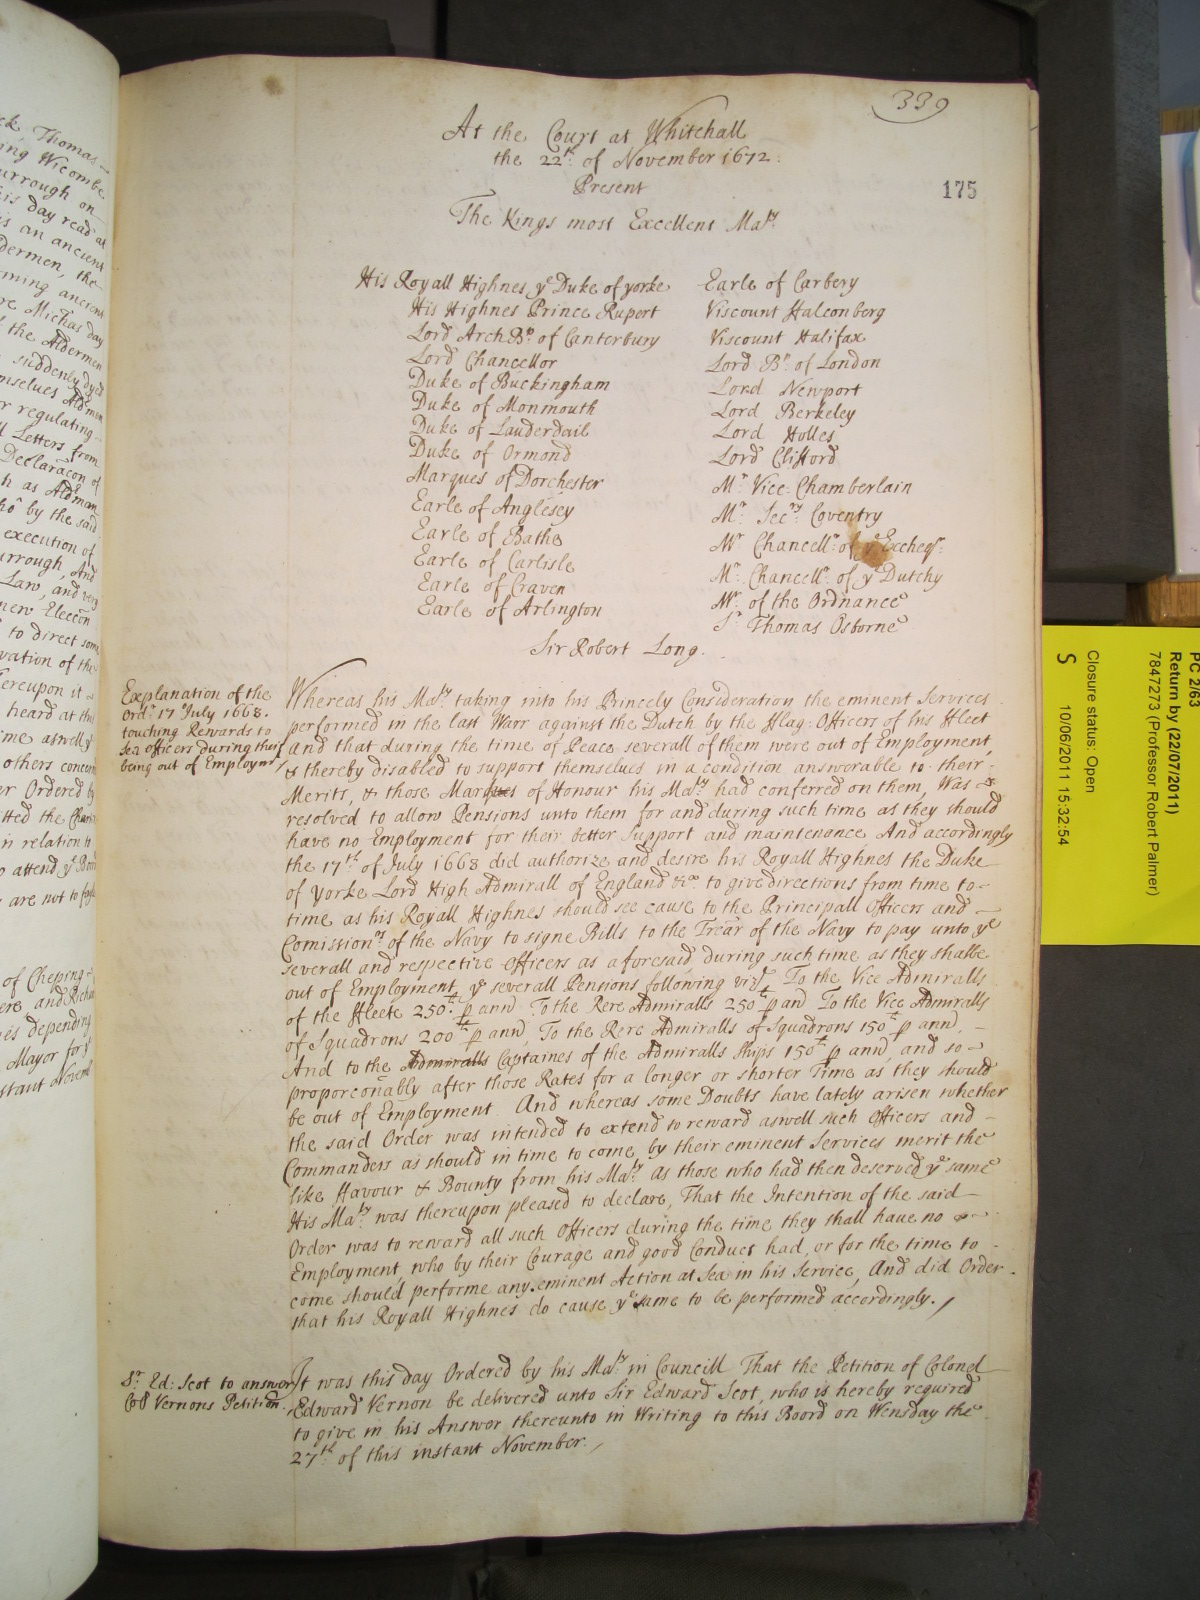 339
At the Court at Whitehall
the 22th of November 1672.
Present
175
The Kings most Excellent Maty
His Royall Highnes ye Duke of yorke
His Highnes Prince Rupert
Lord ArchBp of Canterbury
Lord Chancellor
Duke of Buckingham
Duke of Monmouth
Duke of Lauderdail
Duke of Ormond
Marques of Dorchester
Earle of Anglesey
Earle of Bathe
Earle of Carlisle
Earle of Craven
Earle of Arlington
Earle of Carbery
Viscount Falconberg
Viscount Halifax
Lord Bp of London
Lord Newport
Lord Berkeley
Lord Holles
Lord Clifford
Mr Vice-Chamberlain
Mr Secry Coventry
Mr Chancellr of ye Excheqr:
Mr Chancellr of ye Dutchy
Mr of the Ordnance
Sr Thomas Osborne
Sir Robert Long.
Explanation of the
Ordr 17 July 1668.
touching Rewards to
Sea officers during their
being out of Employmt
Whereas his Maty taking into his Princely Consideration the eminent Services
performed in the last Warr against the Dutch by the Flag-Officers of his Fleet
and that during the time of Peace severall of them were out of Employment,
& thereby disabled to support themselues in a condition answorable to their-
Merits, & those Marques of Honour his Maty had conferred on them, Was
resolved to allow Pensions unto them for and during such time as they should
have no Employment for their better Support and maintenance And accordingly
the 17th of July 1668 did authorize and desire his Royall Highnes the Duke
of Yorke Lord High Admirall of England &ca to give directions from time to-
time as his Royall Highnes should see cause to the Principall Officers and -
Comissionrs of the Navy to signe Bills to the Trear of the Navy to pay unto ye
severall and respective Officers as aforesaid during such time as they shalbe
out of Employment, ye severall Pensions following vizt, To the Vice Admiralls
of the Fleete 250li p ann To the Rere Admiralls 250li p an To the Vice Admiralls
of Squadrons 200li p ann, To the Rere Admiralls of Squadrons 150li p ann, -
And to the Admiralls Captaines of the Admiralls Ships 150li p ann, and so-
proporconably after those Rates for a longer or shorter Time as they should
be out of Employment. And whereas some Doubts have lately arisen whether
the said Order was intended to extend to reward aswell such Officers and -
Commanders as should in time to come by their eminent Services merit the
like Favour & Bounty from his Maty as those who had then deserved ye same
His Maty was thereupon pleased to declare, That the Intention of the said
Order was to reward all such Officers during the time they shall have no
Employment, who by their Courage and good Conduct had, or for the time to -
come should performe any eminent Action at Sea in his Service, And did Order.
that his Royall Highnes do cause ye same to be performed accordingly.
Sr Ed: Scot to answer
Coll Vernons Petition.
It was this day Ordered by his Maty in Councill That the Petition of Colonel
Edward Vernon be delivered unto Sir Edward Scot, who is hereby required
to give in his Answer thereunto in Writing to this Board on Wensday the
27th of this instant November.
PC 2/63
Return by (22/07/2011)
7847273 (Professor Robert Palmer)
Closure status: Open
S 10/06/2011 15:32:54